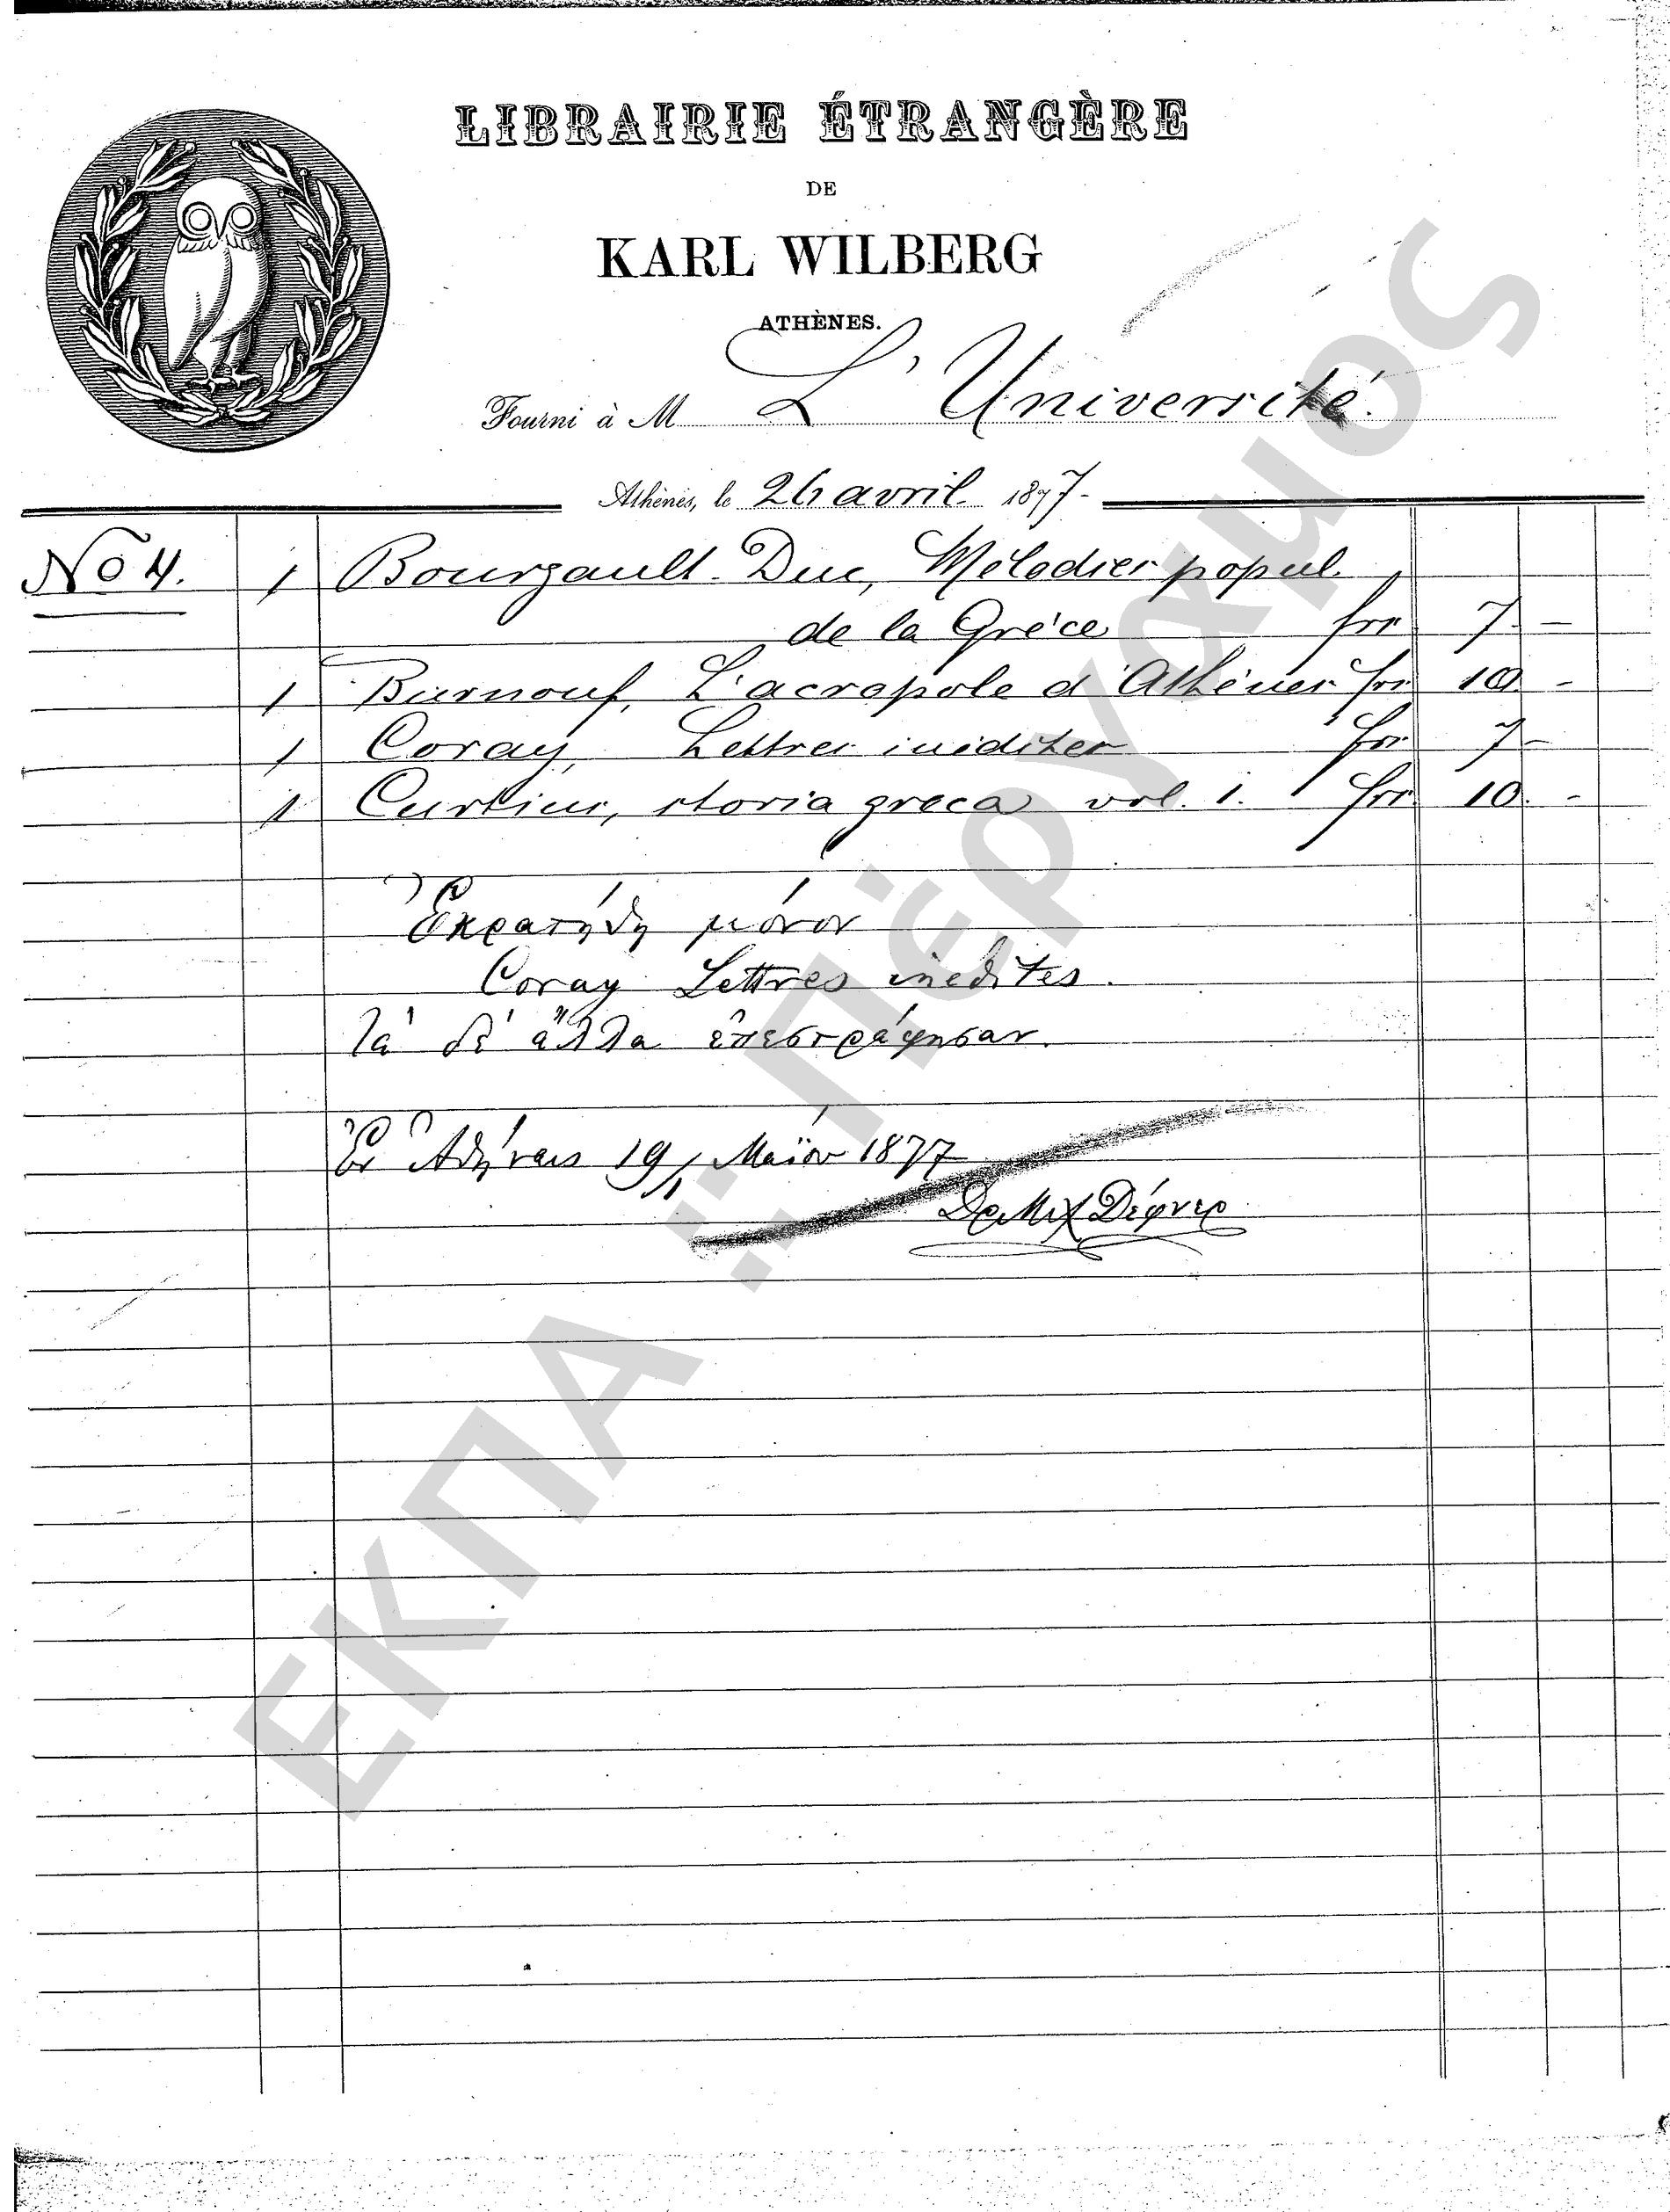 LIBRAIRIE ÉTRANGÈRE
DE
KARL WILBERG
ATHÈNES.
Fourni à M L'Université.
Athènes, le 26 avril 1877-
No 4. 1 Bourgault-Duc, Mélodies popul.
de la Grèce frs 7. —
1 Burnouf, L'acropole d'Athènes frs 10. -
1 Coray, Lettres inédites frs 7 -
1 Curtius, storia greca vol. 1. frs 10. -
Ἐκρατήθη μόνον
Coray Lettres inedites.
Τὰ δὲ ἄλλα ἐπεστράφησαν.
Ἐν Ἀθήναις 19/ Μαΐου 1877
Δρ Μιχ Δέφνερ
ΕΚΠΑ :: Πέργαμος